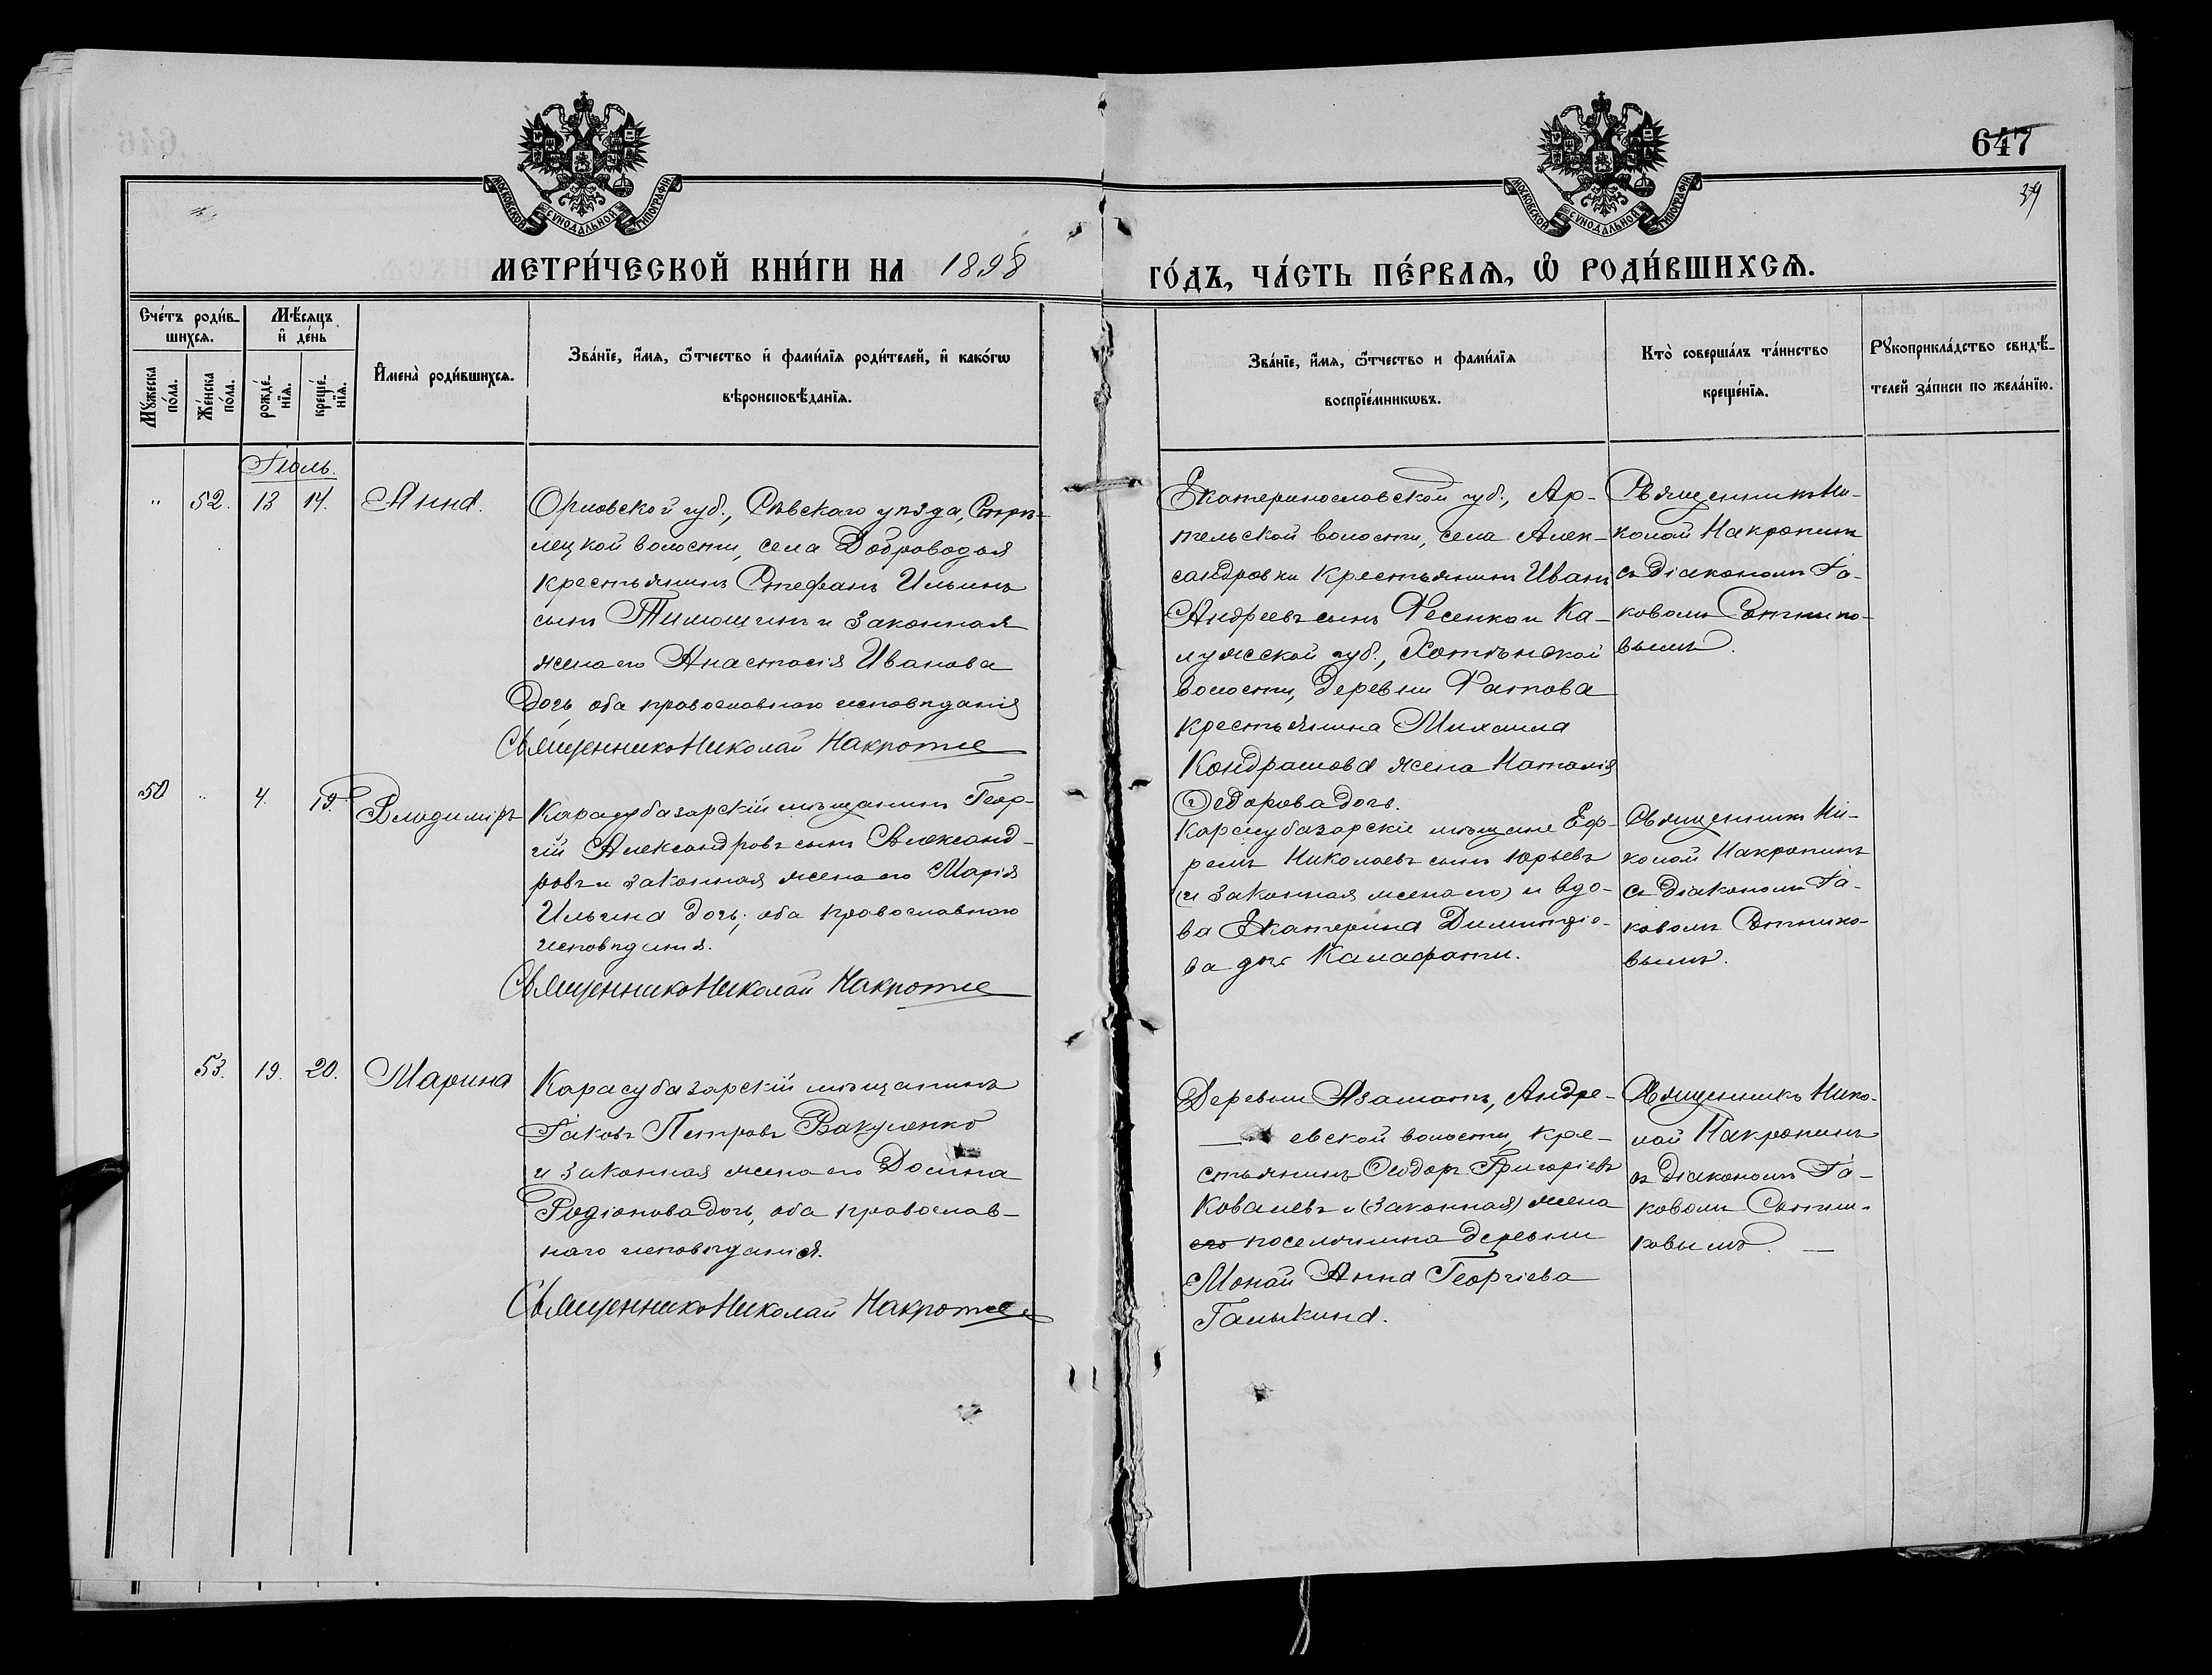 647
39
МОСКОВСКОЙ СѴНОДАЛЬНОЙ ТИПОГРАФІИ
МОСКОВСКОЙ СѴНОДАЛЬНОЙ ТИПОГРАФІИ
МЕТРИ́ЧЕСКОЙ КНИ́ГИ НА 1898
ГО́ДЪ, ЧА́СТЬ ПЕ́РВАѦ, Ѡ҆ РОДИ́ВШИХСѦ.
Сче́тъ роди́в-
шихсѧ.
Мѣ́сѧцъ
и҆ де́нь
Мꙋ́жеска по́ла.
Же́нска по́ла.
рожде́-нїѧ.
креще́-нїѧ.
И҆мена̀ роди́вшихсѧ.
Зва́нїе, и҆́мѧ, ѻ҆́тчество и҆ фами́лїѧ роди́телей, и҆ како́гѡ
вѣроисповѣ́данїѧ.
Зва́нїе, и҆́мѧ, ѻ҆́тчество и фами́лїѧ
воспрїе́мникѡвъ.
Кто̀ соверша́лъ та́инство
креще́нїѧ.
Рꙋкоприкла́дство свидѣ́-
телей за́писи по жела́нїю.
Іюль.
" 52. 13 14. Анна.
Орловской губ., Сѣвскаго уѣзда, Стрѣ-
лецкой волости, села Доброводья
крестьянинъ Стефанъ Ильинъ
сынъ Тимошинъ и законная
жена его Анастасія Иванова
дочь оба православнаго исповѣданія
Священникъ Николай Накропинъ
Екатеринославской губ., Ар-
тельской волости, села Алек-
сандровки крестьянинъ Иванъ
Андреевъ сынъ Фесенко и Ка-
лужской губ., Хотѣнской
волости, деревни Фатова
крестьянина Михаила
Кондрашова жена Наталія
Ѳедорова дочь.
Священникъ Ни-
колай Накропинъ
съ Діакономъ Іа-
ковомъ Сотнико-
вымъ.
50 " 4. 19. Владиміръ
Карасубазарскій мѣщанинъ Геор-
гій Александровъ сынъ Александ-
ровъ и законная жена его Марія
Ильина дочь, оба православнаго
исповѣданія.
Священникъ Николай Накропинъ
Карасубазарскіе мѣщане Еф-
ремъ Николаевъ сынъ Юрьевъ
(и законная жена его) и вдо-
ва Екатерина Димитріе-
ва дочь Калафати.
Священникъ Ни-
колай Накропинъ
съ Діакономъ Іа-
ковомъ Сотнико-
вымъ.
53. 19. 20. Марина
Карасубазарскій мѣщанинъ
Іаковъ Петровъ Вакуленко
и законная жена его Домна
Родіонова дочь, оба православ-
наго исповѣданія.
Священникъ Николай Накропинъ
Деревни Азаматъ, Андре-
евской волости, кре-
стьянинъ Ѳеодоръ Григоріевъ
Ковалевъ и (законная) жена
его поселянина деревни
Монай Анна Георгіева
Галькина.
Священникъ Нико-
лай Накропинъ
съ Діакономъ Іа-
ковомъ Сотни-
ковымъ.